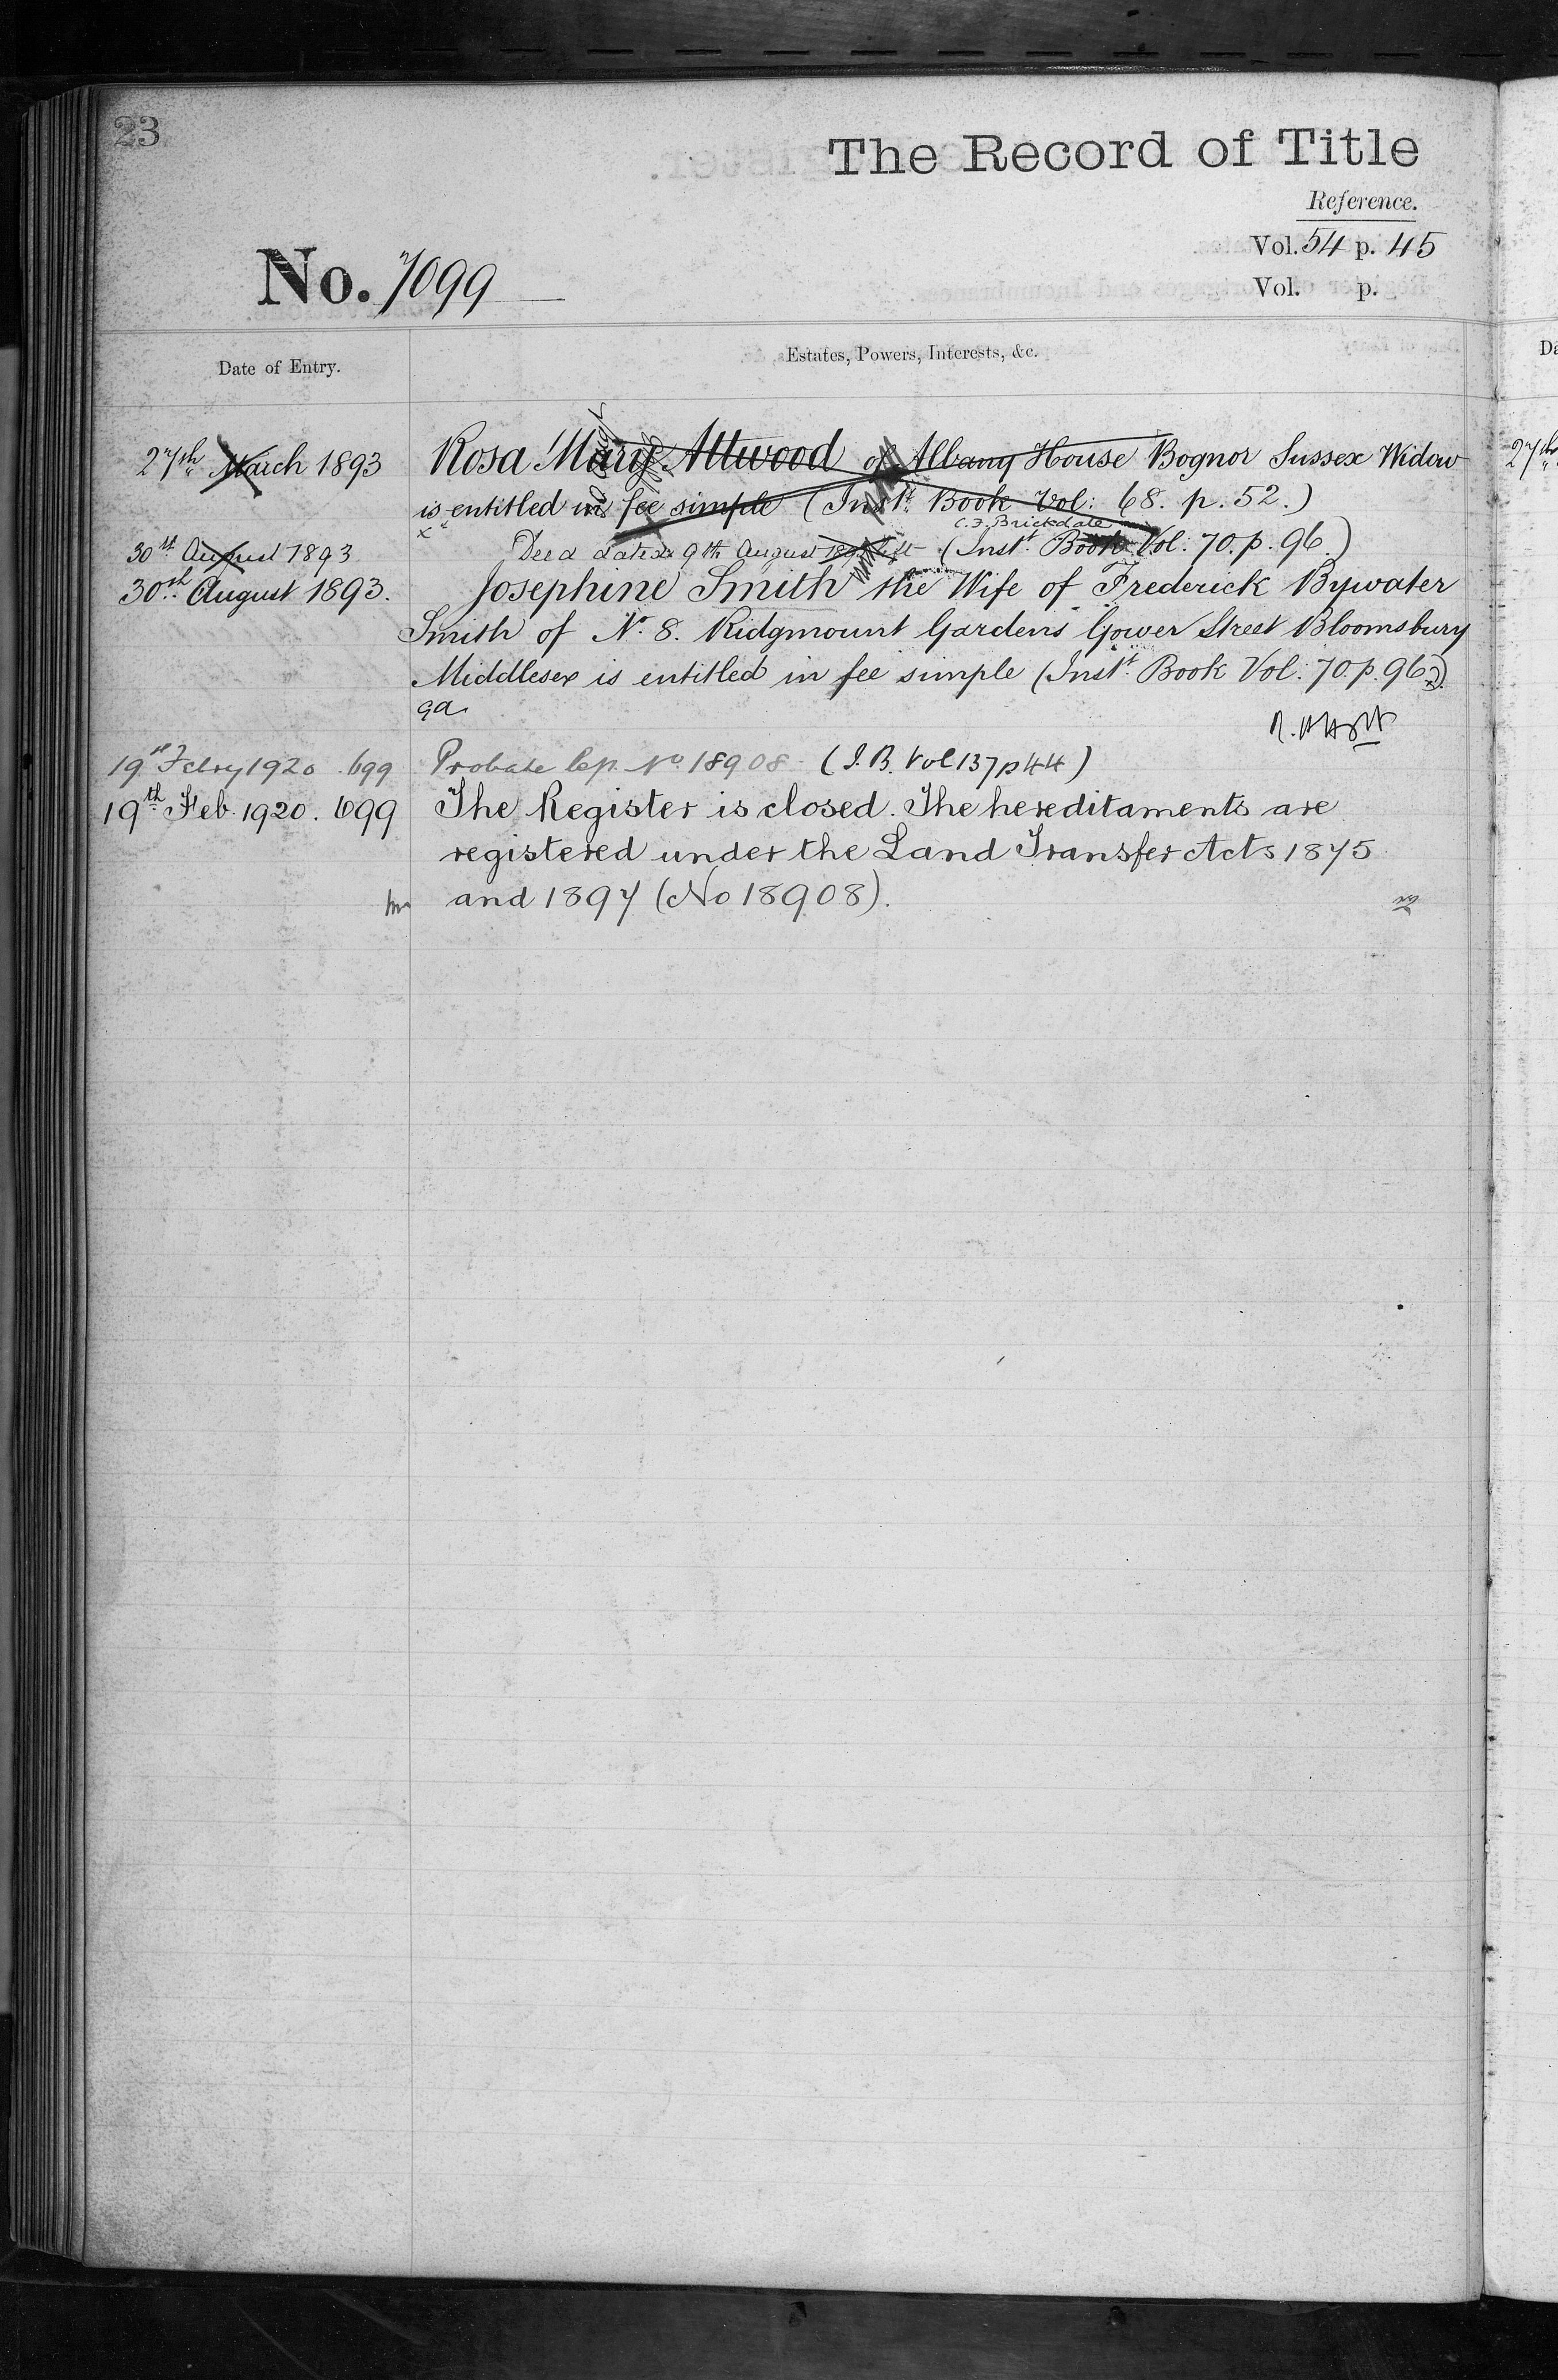 23
The Record of Title
Reference.
Vol. 54 p. 45
No. 7099
Vol. p.
Date of Entry.
Estates, Powers, Interests, &c.
27th March 1893 Rosa Mary Attwood of Albany House Bognor Sussex Widow
is entitled in fee simple (Inst. Book Vol: 68. p. 52.)
C. F. Brickdale
30th August 1893 Deed dated 9th August (Inst. Book Vol: 70. p. 96.)
30th August 1893. Josephine Smith the Wife of Frederick Bywater
Smith of No. 8. Ridgmount Gardens Gower Street Bloomsbury
Middlesex is entitled in fee simple (Inst. Book Vol: 70. p. 96.)
19th Febry 1920 699 Probate No. 18908 (I.B. Vol 137 p 44)
19th Feb. 1920. 699 The Register is closed. The hereditaments are
registered under the Land Transfer Acts 1875
and 1897 (No 18908).
27th
Da